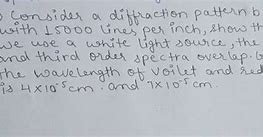 ) Consider a diffraction pattern b
with 15000 lines per inch, show th
we use a white light source, the
and third order spectra overlap. b
the wavelength of voilet and red
is 4x10⁻⁵cm. and 7x10⁻⁵ cm.